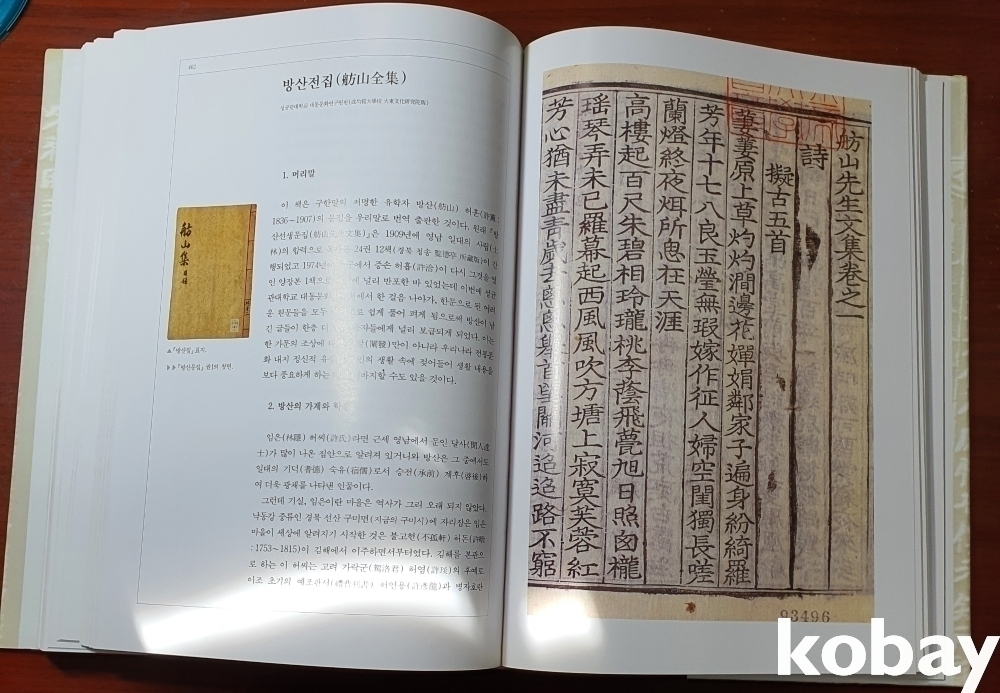 462
방산전집(舫山全集)
성균관대학교 대동문화연구원편(成均館大學校 大東文化硏究院篇)
1. 머리말
이 책은 구한말의 저명한 유학자 방산(舫山) 허훈(許薰:
1836~1907)의 문집을 우리말로 번역 출판한 것이다. 원래 『방
산선생문집(舫山先生文集)』은 1909년에 영남 일대의 사림(士
林)의 합력으로 24권 12책(경북 청송
행되었고 1974년에 에서 종손 허흡(許洽)이 다시 그것을 영
인 양장본 1책으로 널리 반포한 바 있었는데 이번에 성균
관대학교 대동문화 에서 한 걸음 나아가, 한문으로 된 어려
운 원문들을 모두 로 쉽게 풀어 펴게 됨으로써 방산이 남
긴 글들이 한층 더 자들에게 널리 보급되게 되었다. 이는
한 가문의 조상에 (闡發)만이 아니라 우리나라 전통문
화 내지 정신적 유 인의 생활 속에 젖어들어 생활 내용을
보다 풍요하게 하는 바지할 수도 있을 것이다.
舫山集
▲『방산집』 표지.
▶▶『방산문집』 권1의 첫면.
2. 방산의 가계와 학
임은(林隱) 허씨(許氏)라면 근세 영남에서 문인 달사(聞人達
士)가 많이 나온 집안으로 알려져 있거니와 방산은 그 중에서도
일대의 기덕(耆德) 숙유(宿儒)로서 승전(承前) 계후(啓後)하
여 더욱 광채를 나타낸 인물이다.
그런데 기실, 임은이란 마을은 역사가 그리 오래 되지 않았다.
낙동강 중류인 경북 선산 구미면(지금의 구미시)에 자리잡은 임은
마을이 세상에 알려지기 시작한 것은 불고헌(不孤軒) 허돈(許暾
:1753~1815)이 김해에서 이주하면서부터였다. 김해를 본관으
로 하는 이 허씨는 고려 가락군(駕洛君) 허염(許琰)의 후예로
이조 초기의 예조판서(禮曹判書) 허언룡(許彦龍)과 병자호란
舫山先生文集卷之一
詩
擬古五首
萋萋原上草灼灼澗邊花嬋娟鄰家子遍身紛綺羅
芳年十七八良玉瑩無瑕嫁作征人婦空閨獨長嗟
蘭燈終夜炯所思在天涯
高樓起百尺朱碧相玲瓏桃李蔭飛甍旭日照囱櫳
瑶琴弄未已羅幕起西風風吹方塘上寂寞芙蓉紅
芳心猶未盡書歲去悤悤擧首望關河迢迢路不窮
93496
kobay